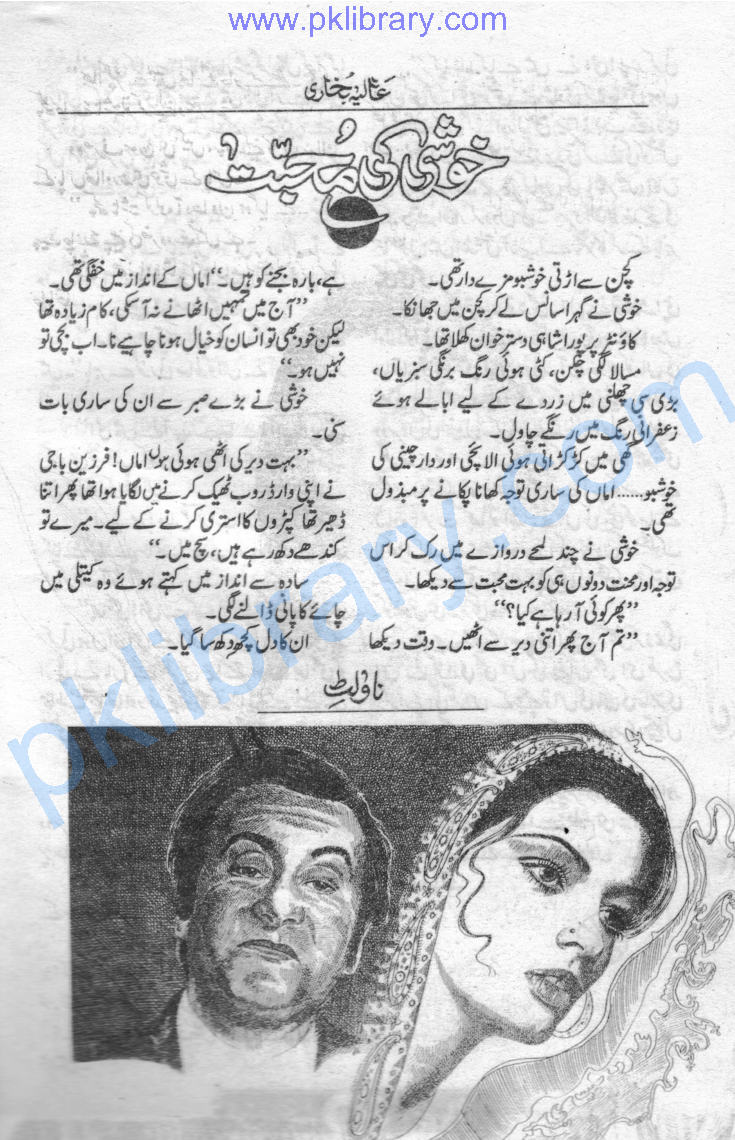 www.pklibrary.com
عالیہ بخاری
خوشی کی محبت
کچن سے اڑتی خوشبو مزے دار تھی۔
خوشی نے گہرا سانس لے کر کچن میں جھانکا۔
کاؤنٹر پر پورا شاہی دسترخوان کھلا تھا۔
مسالا لگی چکن، کٹی ہوئی رنگ برنگی سبزیاں،
بڑی سی چھلنی میں زردے کے لیے ابالے ہوئے
زعفرانی رنگ میں رنگے چاول۔
گھی میں کڑکڑاتی ہوئی الائچی اور دار چینی کی
خوشبو...... اماں کی ساری توجہ کھانا پکانے پر مبذول
تھی۔
خوشی نے چند لمحے دروازے میں رک کر اس
توجہ اور محنت دونوں ہی کو بہت محبت سے دیکھا۔
”پھر کوئی آ رہا ہے کیا؟“
”تم آج پھر اتنی دیر سے اٹھیں۔ وقت دیکھا
ہے، بارہ بجنے کو ہیں۔“ اماں کے انداز میں خفگی تھی۔
”آج میں تمہیں اٹھانے نہ آ سکی، کام زیادہ تھا
لیکن خود بھی تو انسان کو خیال ہونا چاہیے نا۔ اب بچی تو
نہیں ہو۔“
خوشی نے بڑے صبر سے ان کی ساری بات
سنی۔
”بہت دیر کی اٹھی ہوئی ہوں اماں! فرزین باجی
نے اپنی وارڈ روب ٹھیک کرنے میں لگایا ہوا تھا پھر اتنا
ڈھیر تھا کپڑوں کا استری کرنے کے لیے۔ میرے تو
کندھے دکھ رہے ہیں، سچ میں۔“
سادہ سے انداز میں کہتے ہوئے وہ کیتلی میں
چائے کا پانی ڈالنے لگی۔
ان کا دل کچھ دکھ سا گیا۔
ناولٹ
pklibrary.com